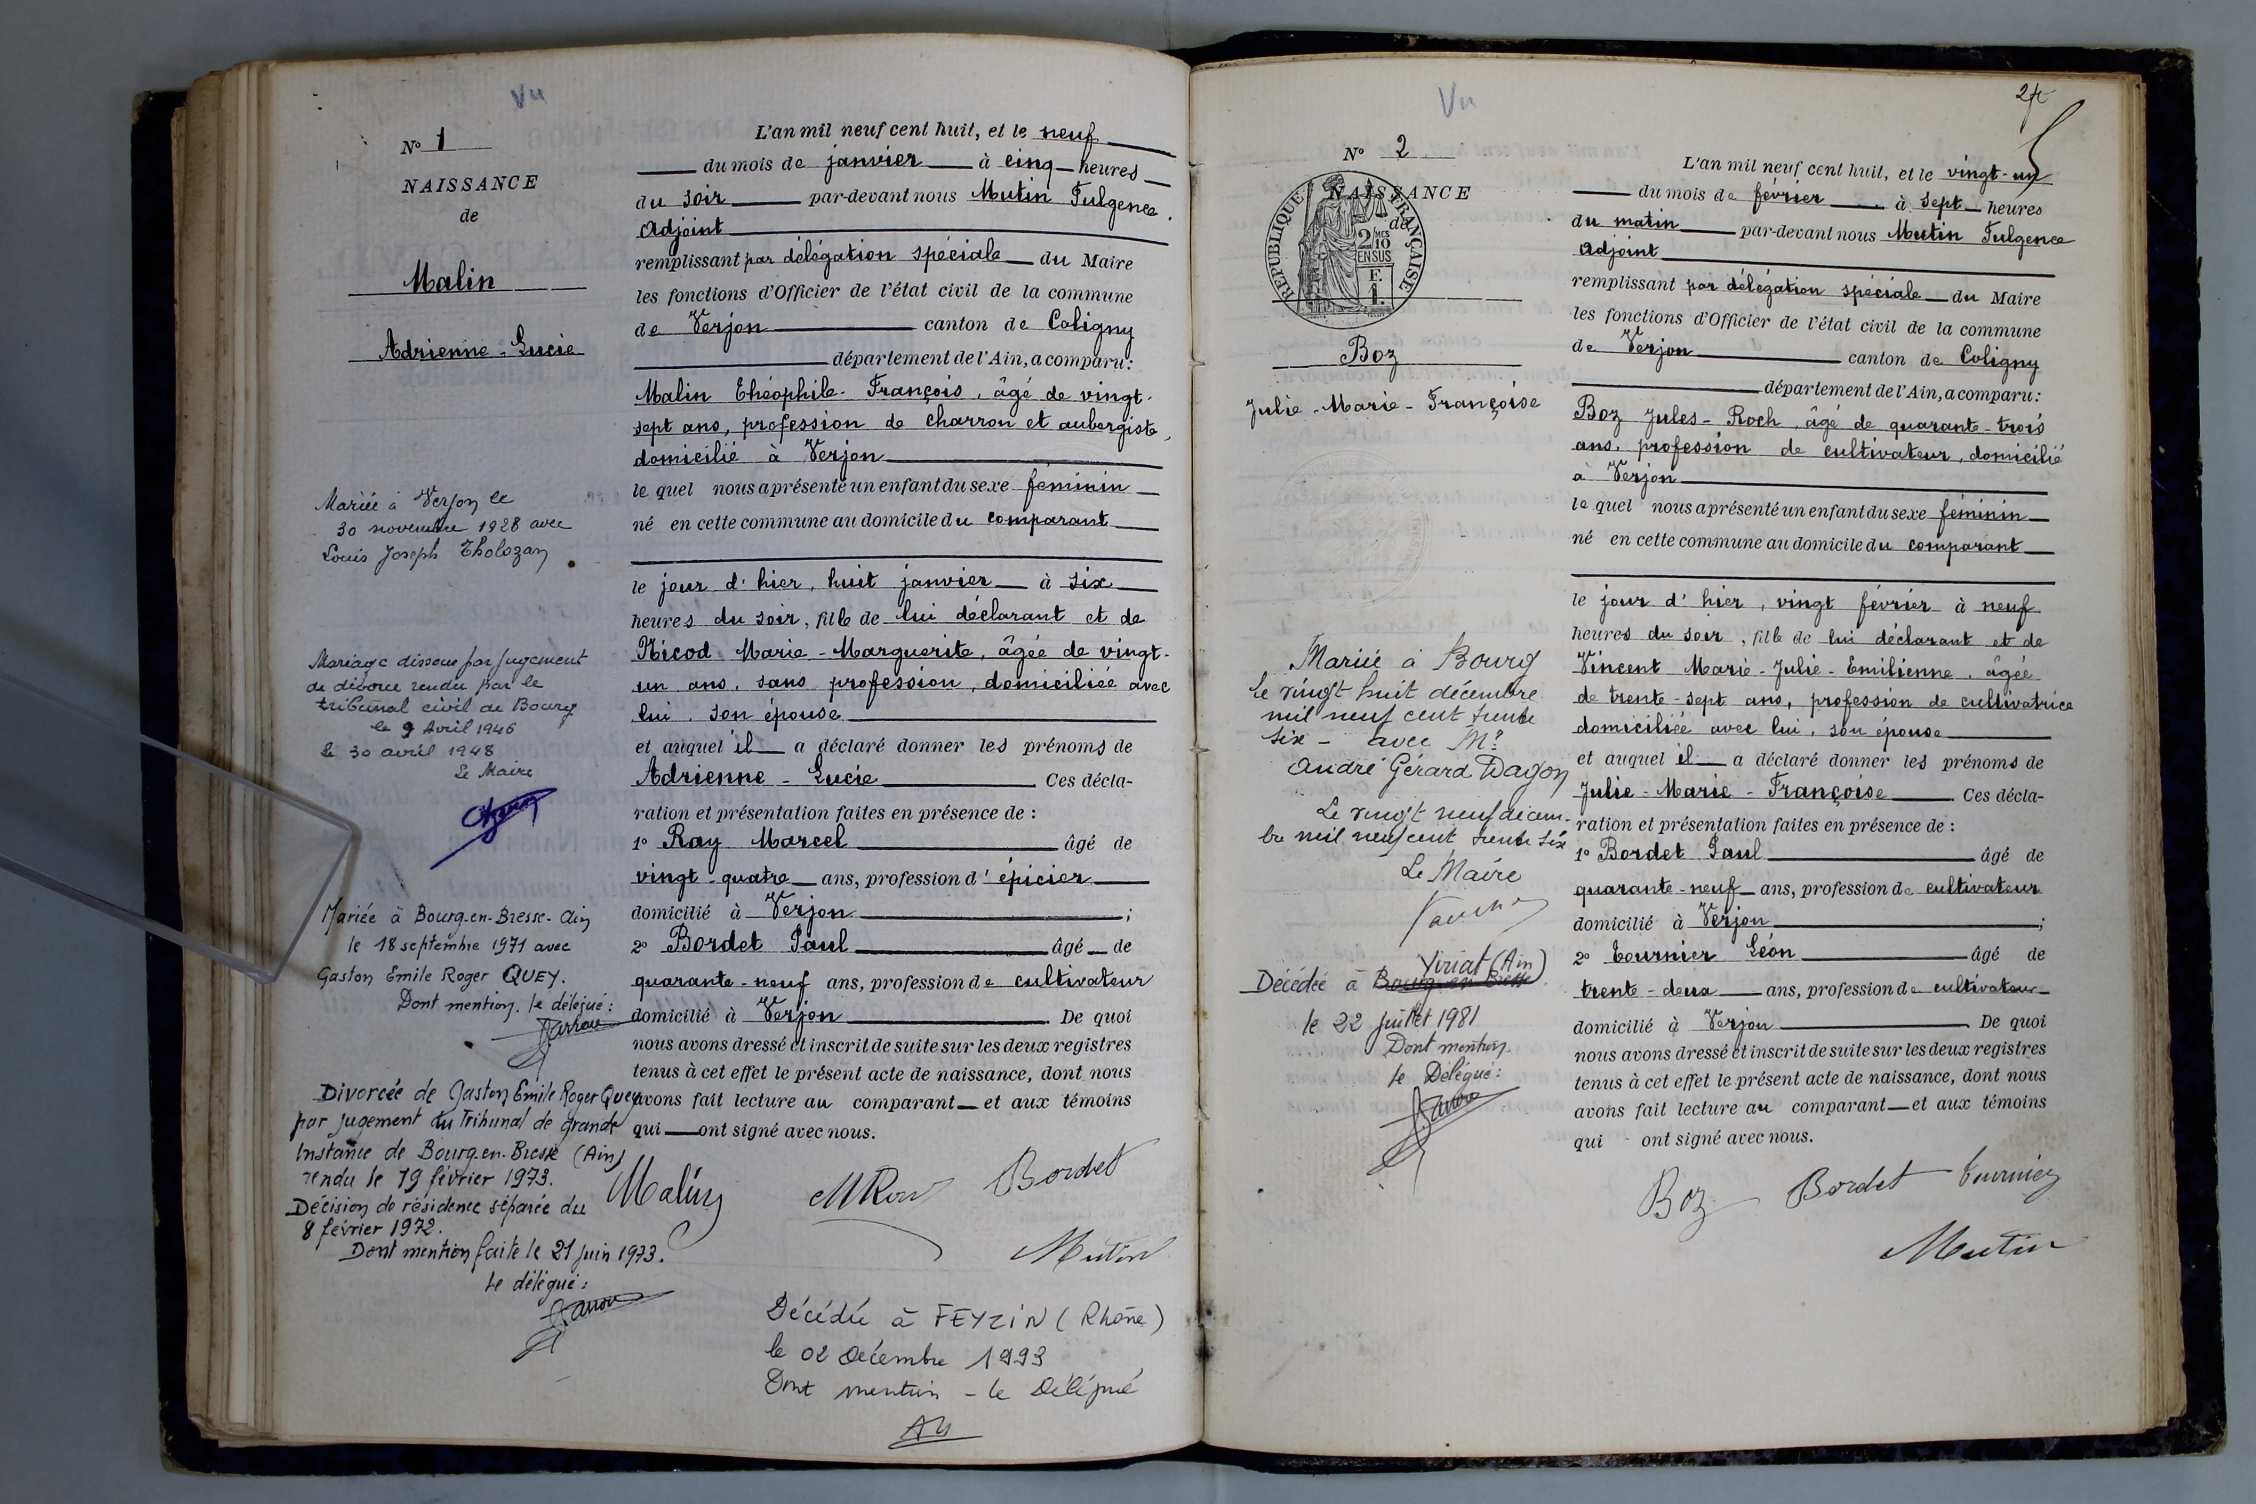 Vu
N° 1
NAISSANCE
de
Malin
Adrienne-Lucie
Mariée à Verjon le
30 novembre 1928 avec
Louis Joseph Tholozan
Mariage dissous par jugement
de divorce rendu par le
tribunal civil de Bourg
le 9 Avril 1946
le 30 avril 1948
Le Maire
Mariée à Bourg-en-Bresse-Ain
le 18 septembre 1971 avec
Gaston Emile Roger QUEY.
Dont mention. le délégué:
Divorcée de Gaston Emile Roger Quey
par jugement du Tribunal de grande
Instance de Bourg-en-Bresse (Ain)
rendu le 19 février 1973.
Décision de résidence séparée du
8 février 1972.
Dont mention faite le 21 juin 1973.
le délégué:
L'an mil neuf cent huit, et le neuf
du mois de janvier à cinq heures
du soir par-devant nous Mutin Fulgence
adjoint
remplissant par délégation spéciale du Maire
les fonctions d'Officier de l'état civil de la commune
de Verjon canton de Coligny
département de l'Ain, a comparu:
Malin Théophile-François, âgé de vingt-
sept ans, profession de charron et aubergiste,
domicilié à Verjon
le quel nous a présenté un enfant du sexe féminin
né en cette commune au domicile du comparant
le jour d'hier, huit janvier à six
heures du soir, fille de lui déclarant et de
Nicod Marie-Marguerite, âgée de vingt-
un ans, sans profession, domiciliée avec
lui, son épouse
et auquel il a déclaré donner les prénoms de
Adrienne-Lucie Ces décla-
ration et présentation faites en présence de :
1° Ray Marcel âgé de
vingt-quatre ans, profession d'épicier
domicilié à Verjon ;
2° Bordet Paul âgé de
quarante-neuf ans, profession de cultivateur
domicilié à Verjon De quoi
nous avons dressé et inscrit de suite sur les deux registres
tenus à cet effet le présent acte de naissance, dont nous
avons fait lecture au comparant et aux témoins
qui ont signé avec nous.
Malin
Bordet
Mutin
Décédée à FEYZIN (Rhône)
le 02 décembre 1993
Dont mention - le Délégué
Vu
N° 2
NAISSANCE
de
RÉPUBLIQUE FRANÇAISE
2 MES
10
EN SUS
F.
1.
Boz
Julie-Marie-Françoise
Mariée à Bourg
le vingt huit décembre
mil neuf cent trente
six - avec Mr
André Gérard Dagon
Le vingt neuf décem-
bre mil neuf cent trente six
Le Maire
Viriat (Ain)
Décédée à Bourg-en-Bresse
le 22 juillet 1981
Dont mention
le Délégué:
L'an mil neuf cent huit, et le vingt-un
du mois de février à sept heures
du matin par-devant nous Mutin Fulgence
adjoint
remplissant par délégation spéciale du Maire
les fonctions d'Officier de l'état civil de la commune
de Verjon canton de Coligny
département de l'Ain, a comparu:
Boz Jules-Roch, âgé de quarante-trois
ans, profession de cultivateur, domicilié
à Verjon
le quel nous a présenté un enfant du sexe féminin
né en cette commune au domicile du comparant
le jour d'hier, vingt février à neuf
heures du soir, fille de lui déclarant et de
Vincent Marie-Julie-Emilienne, âgée
de trente-sept ans, profession de cultivatrice
domiciliée avec lui, son épouse
et auquel il a déclaré donner les prénoms de
Julie-Marie-Françoise Ces décla-
ration et présentation faites en présence de :
1° Bordet Paul âgé de
quarante-neuf ans, profession de cultivateur
domicilié à Verjon ;
2° Tournier Léon âgé de
trente-deux ans, profession de cultivateur
domicilié à Verjon De quoi
nous avons dressé et inscrit de suite sur les deux registres
tenus à cet effet le présent acte de naissance, dont nous
avons fait lecture au comparant et aux témoins
qui ont signé avec nous.
Boz Bordet Tournier
Mutin